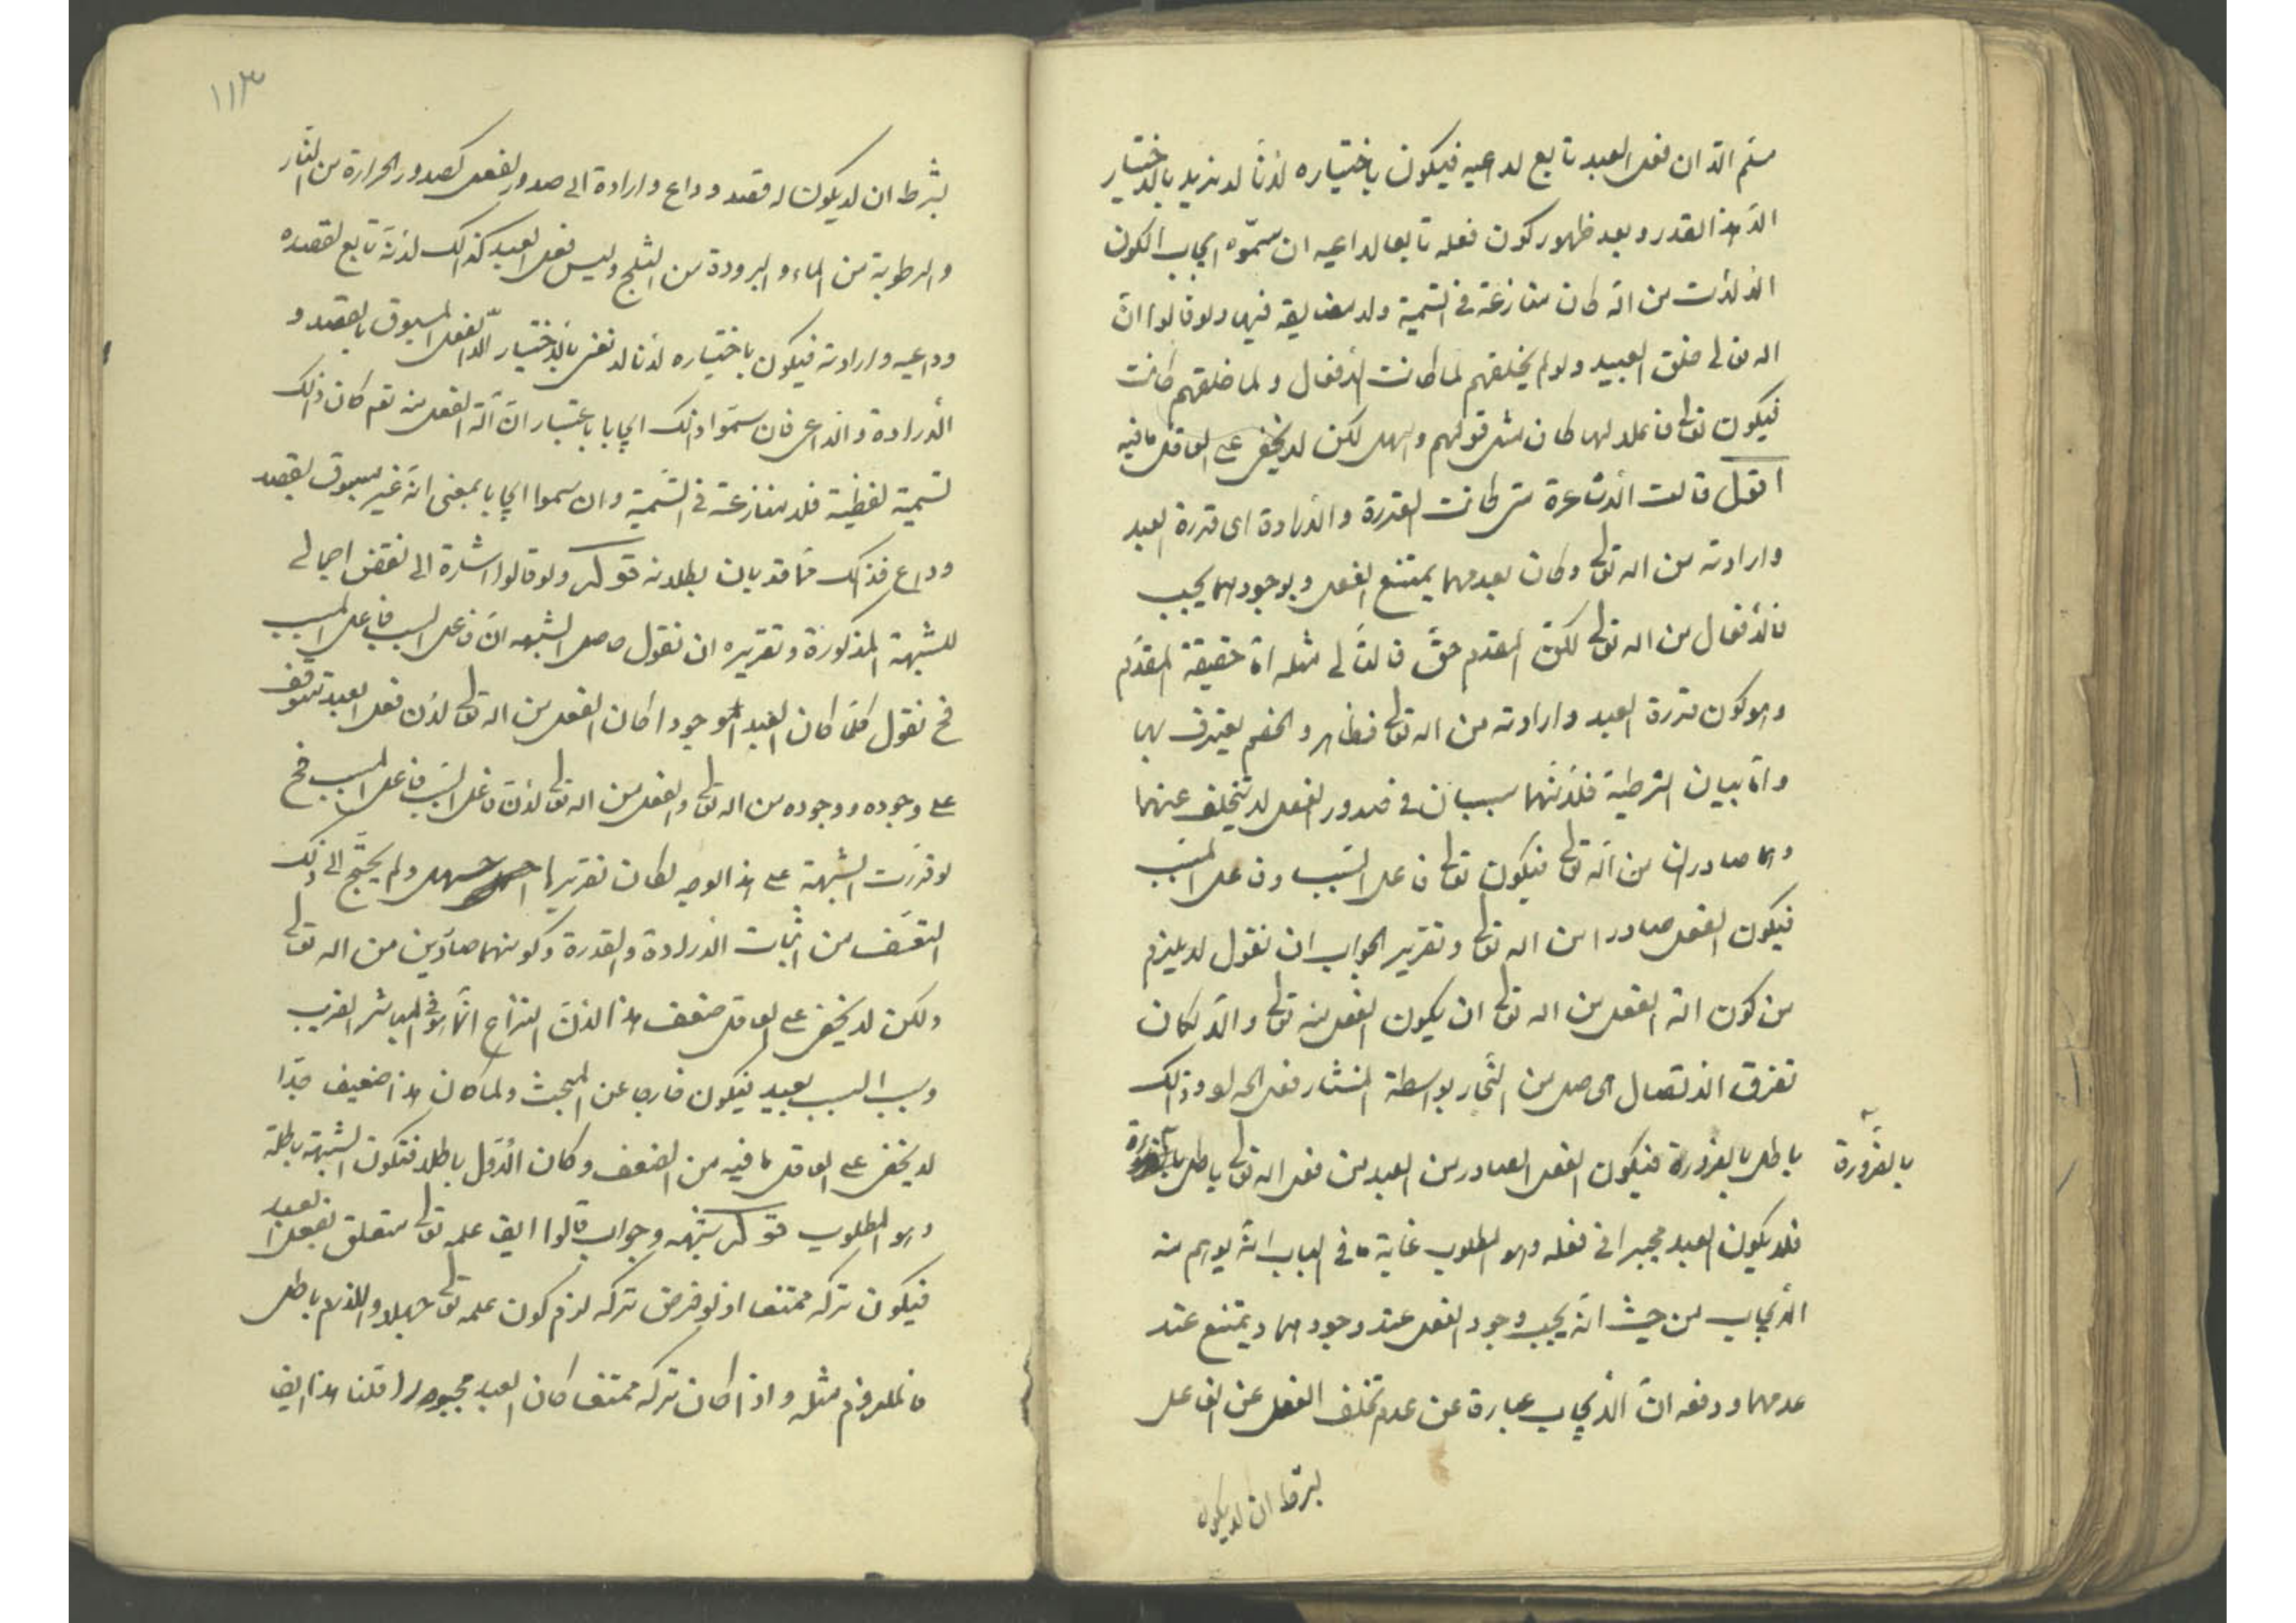 مسلم الا ان فعل العبد تابع لداعيه فيكون باختياره لانا لا نريد بالاختيار
الا هذا القدر و بعد ظهور كون فعله تابعا لداعيه ان سموه ايجاب الكون
الالات من الله كان منازعة في التسمية ولا مضايقه فيها ولو قالوا ان
الله تعالى خلق العبيد ولو لم يخلقهم لما كانت الافعال ولما خلقهم كانت
فيكون تعالى فاعلا لها كان مثل قولهم واسهل لكن لا يخفى على العاقل ما فيه
اقول قالت الاشاعرة متى كانت القدرة والارادة اى قدرة العبد
وارادته من الله تعالى وكان بعدمهما يمتنع الفعل وبوجودهما يجب
فالافعال من الله تعالى لكن المقدم حق فالتالى مثله اما حقيقة المقدم
وهو كون قدرة العبد وارادته من الله تعالى فظاهر والخصم يعترف بها
واما بيان الشرطية فلانهما سببان فى صدور الفعل لا يتخلف عنهما
وهما صادران من الله تعالى فيكون تعالى فاعل السبب وفاعل المسبب
فيكون الفعل صادرا من الله تعالى وتقرير الجواب ان نقول لا يلزم
من كون آلة الفعل من الله تعالى ان يكون الفعل منه تعالى والا لكان
تفرق الاتصال الحاصل من النجار بواسطة المنشار فعل الحداد وذلك
باطل بالضرورة فيكون الفعل الصادر من العبد من فعل الله تعالى باطل بالضرورة
بالضرورة
فلا يكون العبد مجبرا فى فعله وهو المطلوب غاية ما فى الباب انه يوهم منه
الايجاب من حيث انه يجب وجود الفعل عند وجودهما ويمتنع عند
عدمهما ودفعه ان الايجاب عبارة عن عدم تخلف الفعل عن الفاعل
بشرط ان لا يكون
١١٣
بشرط ان لا يكون له قصد وداع وارادة الى صدور الفعل كصدور الحرارة من النار
والرطوبة من الماء والبرودة من الثلج وليس فعل العبد كذلك لانه تابع لقصده
وداعيه وارادته فيكون باختياره لانا لا نعنى بالاختيار الا الفعل المسبوق بالقصد و
الارادة والداعى فان سموا ذلك ايجابا باعتبار ان آلة الفعل منه نعم كان ذلك
تسمية لفظية فلا منازعة فى التسمية وان سموا ايجابا بمعنى انه غير مسبوق بقصد
وداع فذلك مما قد بان بطلانه قوله ولو قالوا اشارة الى نقض اجمالى
للشبهة المذكورة وتقريره ان نقول حاصل الشبهه ان فاعل السبب فاعل المسبب
فح نقول كلما كان العبد موجودا كان الفعل من الله تعالى لان فعل العبد يتوقف
على وجوده ووجوده من الله تعالى والفعل من الله تعالى لان فاعل السبب فاعل المسبب فح
لو قررت الشبهة على هذا الوجه لكان تقريرها اسهل ولم يحتج الى ذلك
التعسف من اثبات الارادة والقدرة وكونهما صادرين من الله تعالى
ولكن لا يخفى على العاقل ضعف هذا لان النزاع انما هو فى المباشر القريب
وسبب السبب بعيد فيكون خارجا عن المبحث ولما كان هذا ضعيف جدا
لا يخفى على العاقل ما فيه من الضعف وكان الاول باطلا فتكون الشبهة باطلة
وهو المطلوب قوله شبهه وجواب قالوا ايض علمه تعالى متعلق بفعل العبد
فيكون تركه ممتنعا اذ لو فرض تركه لزم كون علمه تعالى جهلا واللازم باطل
فالملزوم مثله واذا كان تركه ممتنعا كان العبد مجبورا قلنا هذا ايض